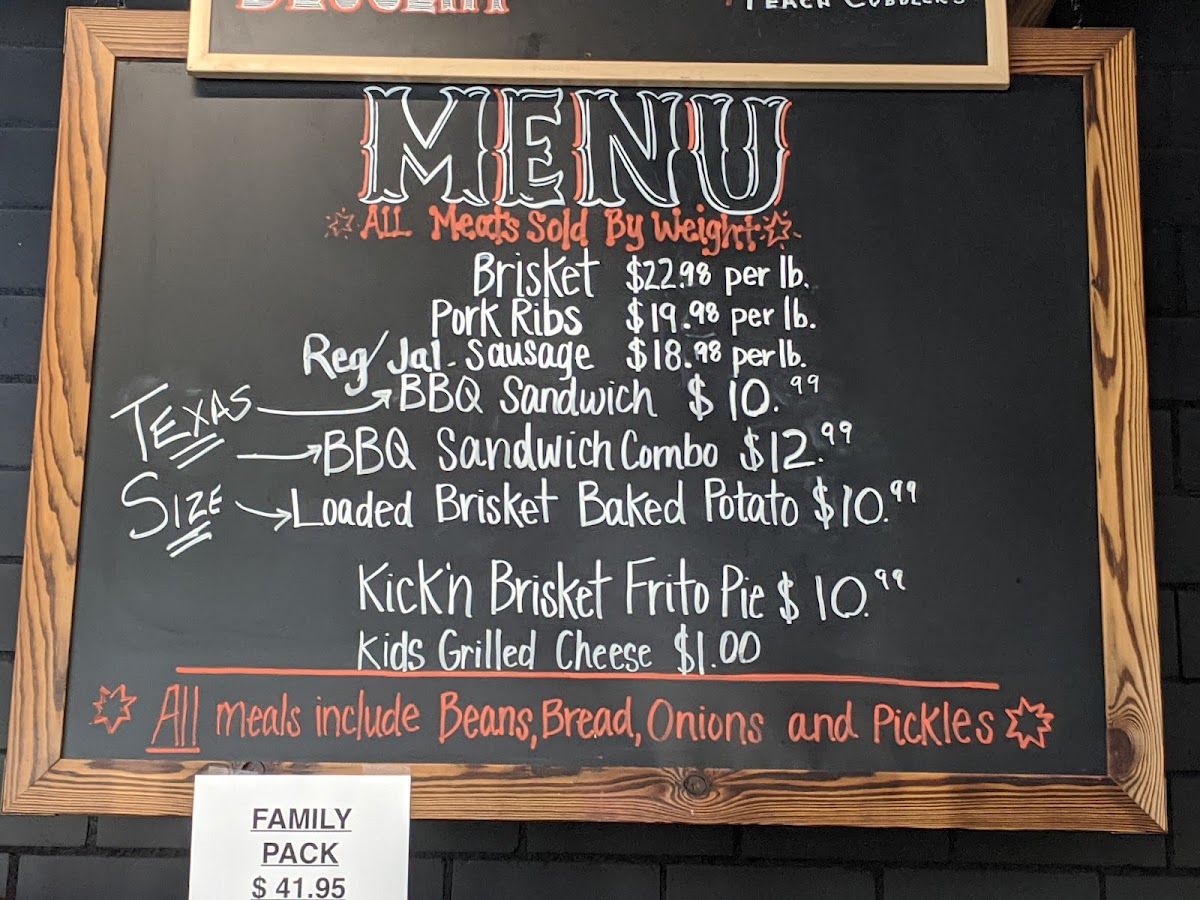 DESSERT
PEACH COBBLERS
MENU
ALL Meats Sold By Weight
Brisket $22.98 per lb.
Pork Ribs $19.98 per lb.
Reg/Jal. Sausage $18.98 per lb.
TEXAS SIZE
BBQ Sandwich $10.99
BBQ Sandwich Combo $12.99
Loaded Brisket Baked Potato $10.99
Kick'n Brisket Frito Pie $10.99
Kids Grilled Cheese $1.00
All meals include Beans, Bread, Onions and Pickles
FAMILY
PACK
$ 41.95